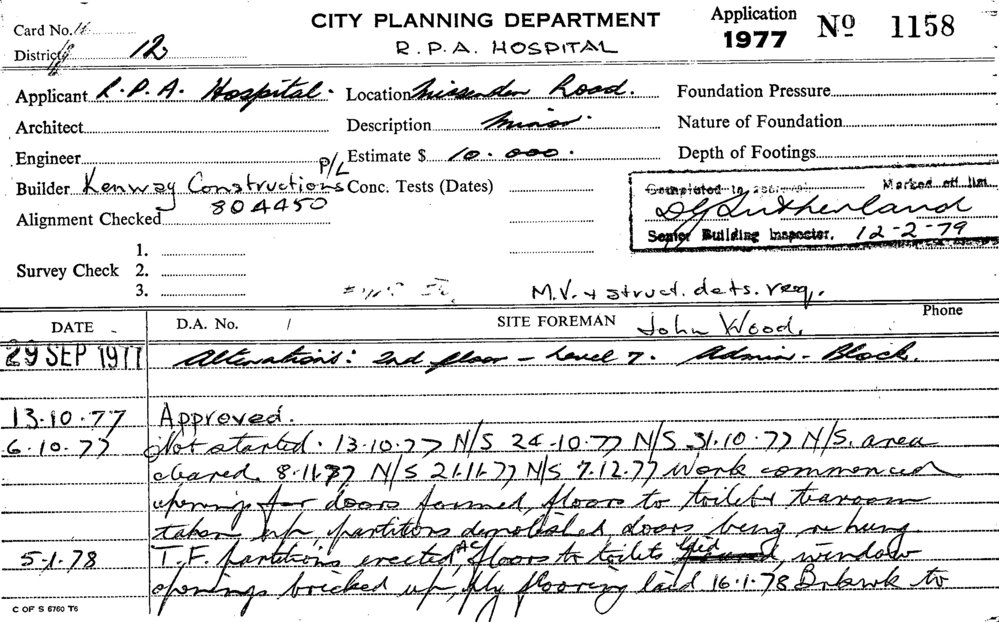 Card No.
CITY PLANNING DEPARTMENT
Application
1977
No 1158
District 12
R.P.A. HOSPITAL
Applicant R.P.A. Hospital. Location Missenden Road. Foundation Pressure
Architect Description Minor. Nature of Foundation
Engineer Estimate $ 10.000. Depth of Footings
Builder Kenway Constructions P/L Conc. Tests (Dates)
804450
Completed to Marked off list
DG Sutherland
Senior Building Inspector. 12-2-79
Alignment Checked
Survey Check 1.
2.
3.
M.V. + struct. dets. req.
DATE D.A. No. / SITE FOREMAN John Wood. Phone
29 SEP 1977 Alterations: 2nd floor - Level 7. Admin - Block.
13.10.77 Approved.
6.10.77 Not started. 13.10.77 N/S 24.10.77 N/S 31.10.77 N/S. area
cleared. 8.11.77 N/S 21.11.77 N/S 7.12.77 Work commenced
openings for doors formed, floors to toilet & tearoom
taken up, partitions demolished doors being re hung
5.1.78 T.F. partitions erected, AC floors to toilets laid, window
openings bricked up, ply flooring laid 16.1.78 Brkwk to
C OF S 6760 T6